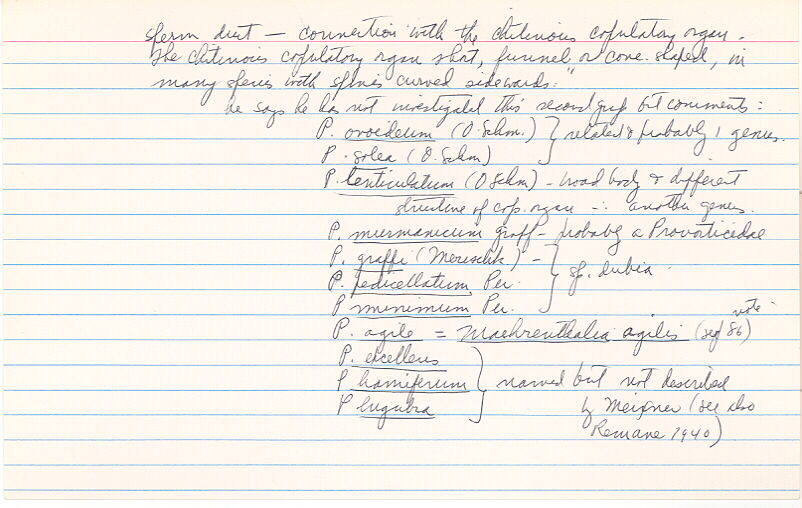 sperm duct — connection with the chitinous copulatory organ.
The chitinous copulatory organ short, funnel or cone-shaped, in
many species with spines curved sidewards."
he says he has not investigated this second group but comments:
P. ovoideum (O. Schm.) } related & probably 1 genus.
P. solea (O. Schm)
P. lenticulatum (O Schm) - broad body & different
structure of cop. organ -∴ another genus.
P. murmanicum graff - probably a Provorticidae
P. graffi (Mereschk.) -
P. pedicellatum Per. } sp. dubia.
P minimum Per.
P. agile = Maehrenthalia agilis (see note 86)
P. excellens
P hamiferum } named but not described
P lugubra by Meixner (see also
Remane 1940)